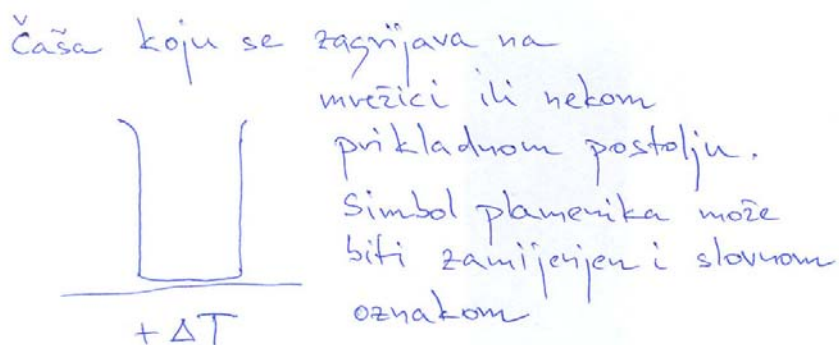 Čaša koju se zagrijava na
mrežici ili nekom
prikladnom postolju.
Simbol plamenika može
biti zamijenjen i slovnom
oznakom
+ΔT